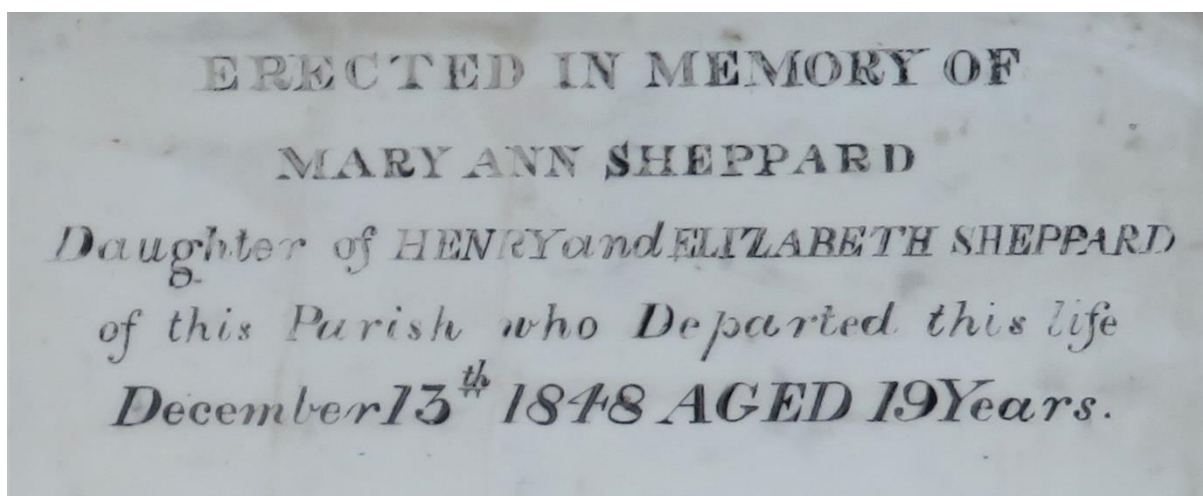 ERECTED IN MEMORY OF
MARY ANN SHEPPARD
Daughter of HENRY and ELIZABETH SHEPPARD
of this Parish who Departed this life
December 13th 1848 AGED 19 Years.